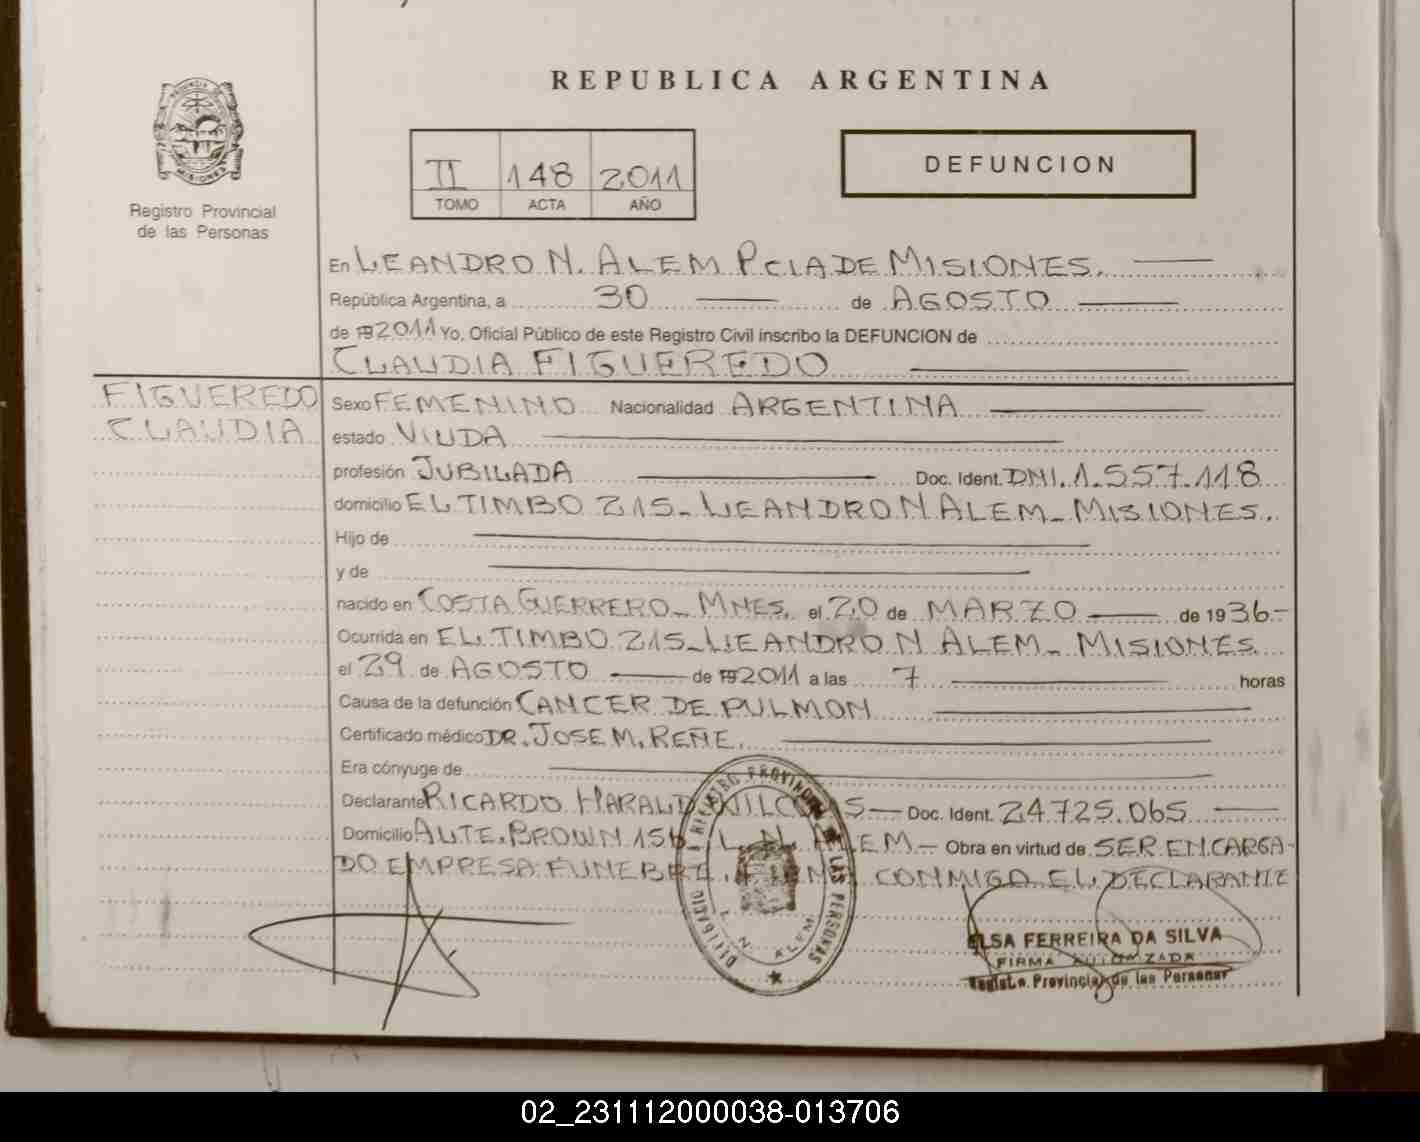 REPUBLICA ARGENTINA
II 148 2011
TOMO ACTA AÑO
DEFUNCION
Registro Provincial
de las Personas
En LEANDRO N. ALEM PCIA DE MISIONES.
República Argentina, a 30 de AGOSTO
de 19 2011 Yo, Oficial Público de este Registro Civil inscribo la DEFUNCION de
CLAUDIA FIGUEREDO
FIGUEREDO
CLAUDIA
Sexo FEMENINO Nacionalidad ARGENTINA
estado VIUDA
profesión JUBILADA Doc. Ident. DNI. 1.557.118
domicilio EL TIMBO 215 - LEANDRO N ALEM - MISIONES.
Hijo de
y de
nacido en COSTA GUERRERO - MNES. el 20 de MARZO de 1936-
Ocurrida en EL TIMBO 215 - LEANDRO N ALEM - MISIONES
el 29 de AGOSTO de 19 2011 a las 7 horas
Causa de la defunción CANCER DE PULMON
Certificado médico DR. JOSE M. REÑE.
Era cónyuge de
Declarante RICARDO HARALD Doc. Ident. 24.725.065
Domicilio ALTE. BROWN L. N. ALEM - Obra en virtud de SER ENCARGA-
DO EMPRESA FUNEBRE. CONMIGO EL DECLARANTE
REGISTRO PROVINCIAL DE LAS PERSONAS
L. N. ALEM
ELSA FERREIRA DA SILVA
FIRMA AUTORIZADA
Registro Provincial de las Personas
02_231112000038-013706